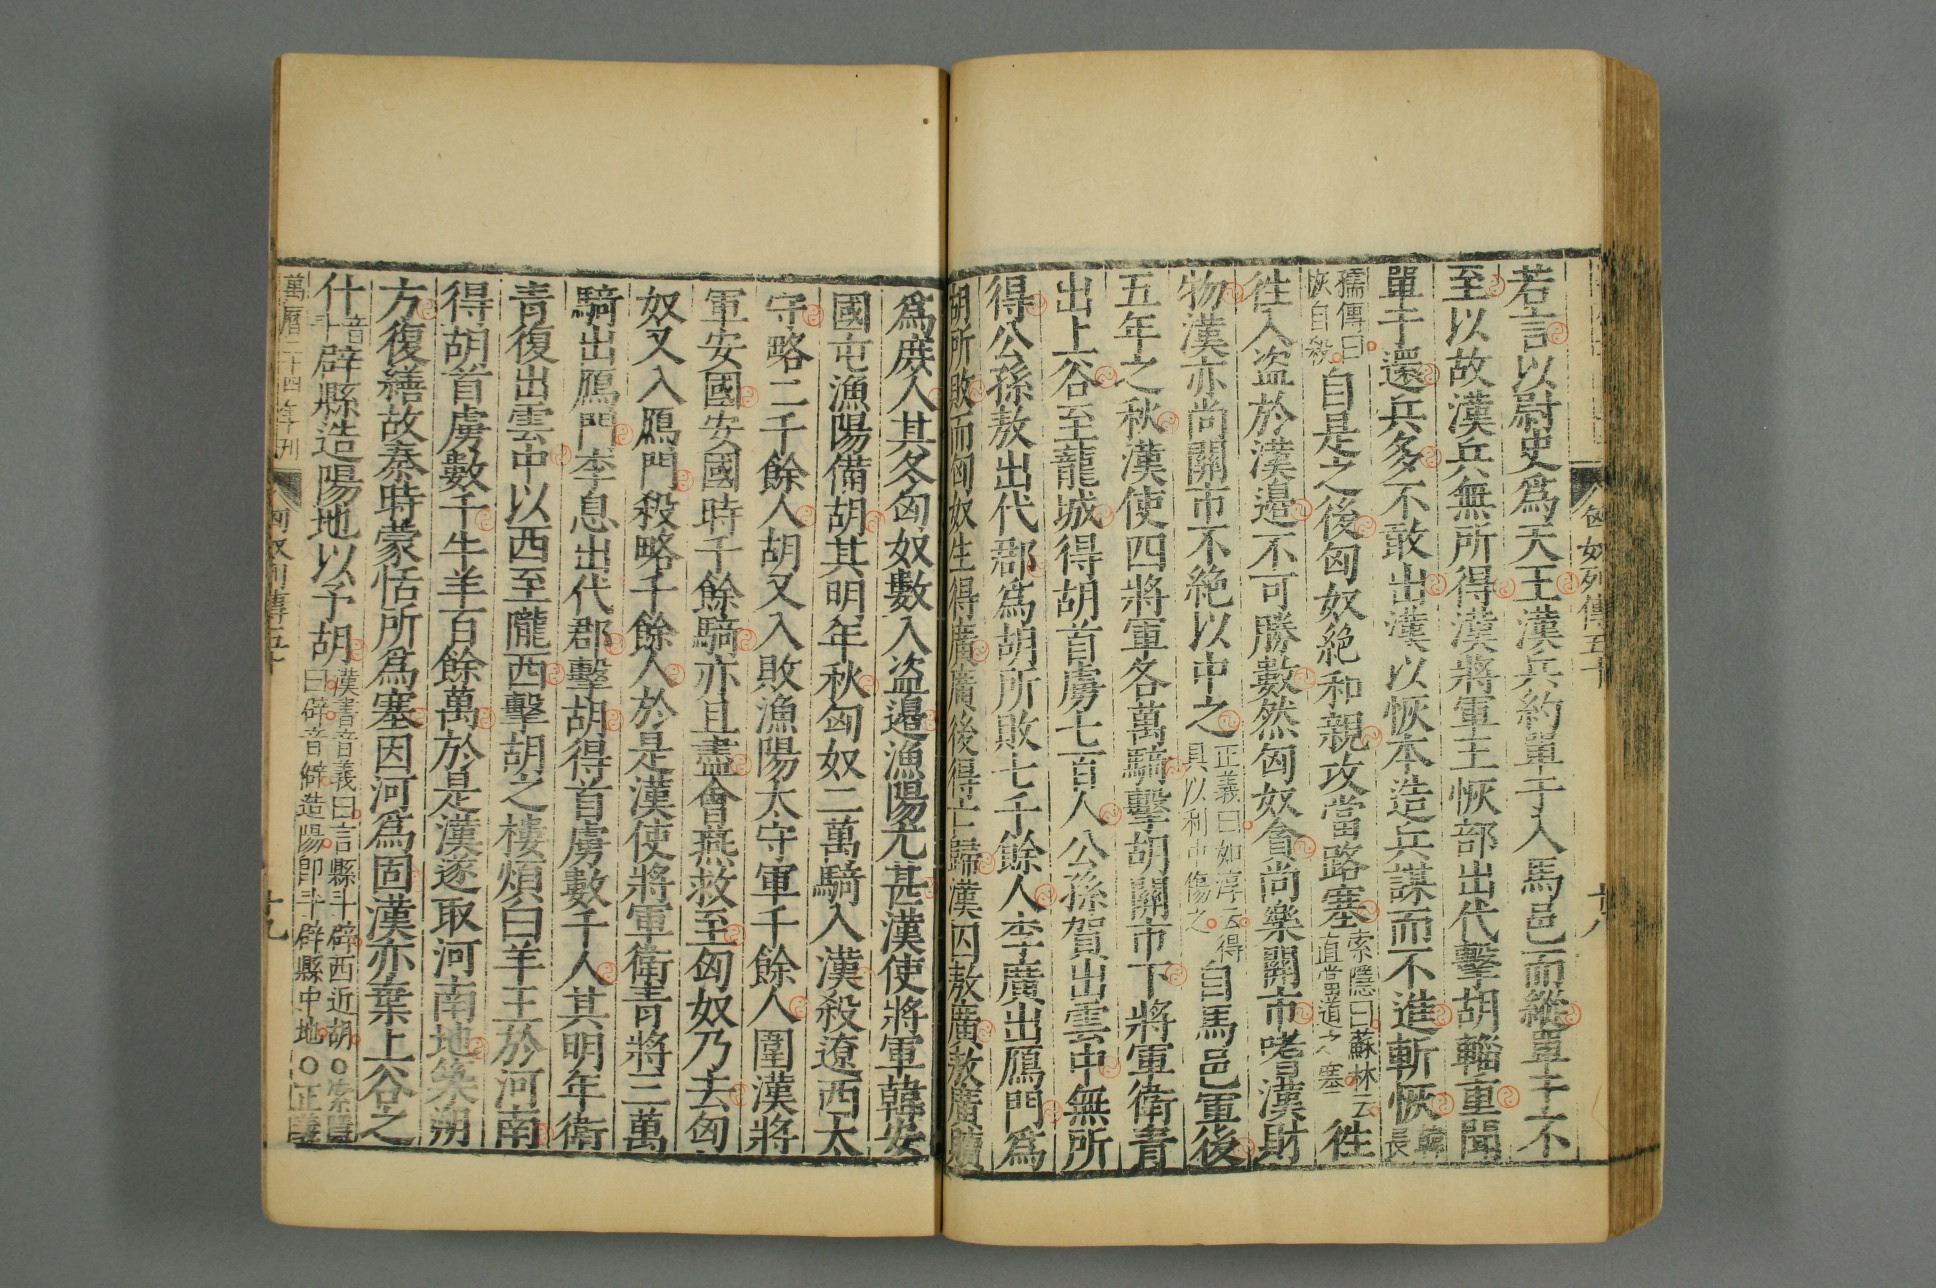 若言以尉史爲天王漢兵約單于入馬邑而縱單于不
至以故漢兵無所得漢將軍王恢部出代擊胡輜重聞
單于還兵多不敢出漢以恢本造兵謀而不進斬恢韓長
孺傳曰恢自殺自是之後匈奴絶和親攻當路塞索隱曰蘇林云直當道之塞徃
徃入盗於漢邉不可勝數然匈奴貪尚樂關市嗜漢財
物漢亦尚關市不絶以中之正義曰如淳云得具以利中傷之自馬邑軍後
五年之秋漢使四將軍各萬騎擊胡關市下將軍衛青
出上谷至蘢城得胡首虜七百人公孫賀出雲中無所
得公孫敖出代郡爲胡所敗七千餘人李廣出鴈門爲
胡所敗而匈奴生得廣廣後得亡歸漢囚敖廣敖廣贖
匈奴列傳五十
廿八
爲庶人其冬匈奴數入盗邉漁陽尤甚漢使將軍韓安
國屯漁陽備胡其明年秋匈奴二萬騎入漢殺遼西太
守略二千餘人胡又入敗漁陽太守軍千餘人圍漢將
軍安國安國時千餘騎亦且盡會燕救至匈奴乃去匈
奴又入鴈門殺略千餘人於是漢使將軍衛青將三萬
騎出鴈門李息出代郡擊胡得首虜數千人其明年衛
青復出雲中以西至隴西擊胡之樓煩白羊王於河南
得胡首虜數千牛羊百餘萬於是漢遂取河南地築朔
方復繕故秦時蒙恬所爲塞因河爲固漢亦棄上谷之
什音斗辟縣造陽地以予胡漢書音義曰言縣斗辟西近胡○索隱曰辟音僻造陽卽斗辟縣中地○正義
萬曆二十四年刊
匈奴列傳五十
廿九